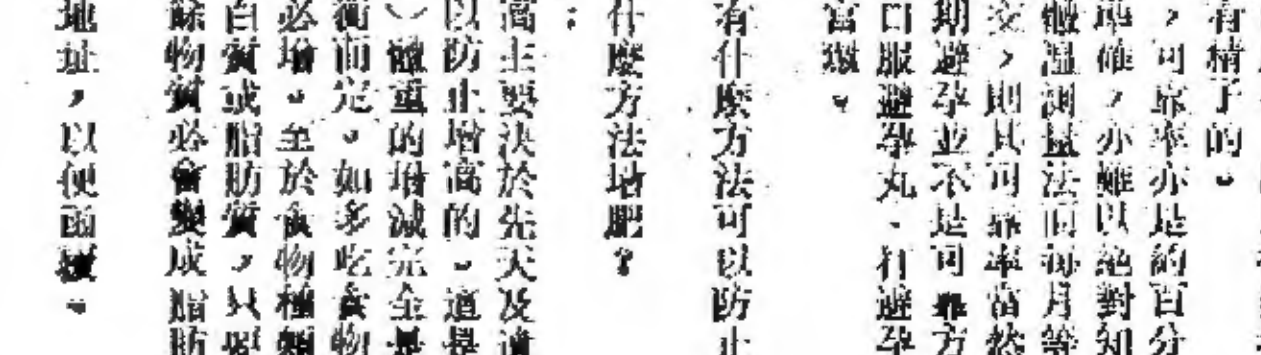 有精子的。
，可靠率亦是約百分
準確，亦難以絕對知
體溫測量法而每月等
交，則其可靠率當然
期避孕並不是可靠方
口服避孕丸、打避孕
當環。
有什麼方法可以防止
什麼方法增肥？
：
高主要決於先天及遺
以防止增高的。這是
）體重的增減完全是
衡而定。如多吃食物
必增。至於食物種類
白質或脂肪質，只要
餘物質必會變成脂肪
地址，以便函覆。